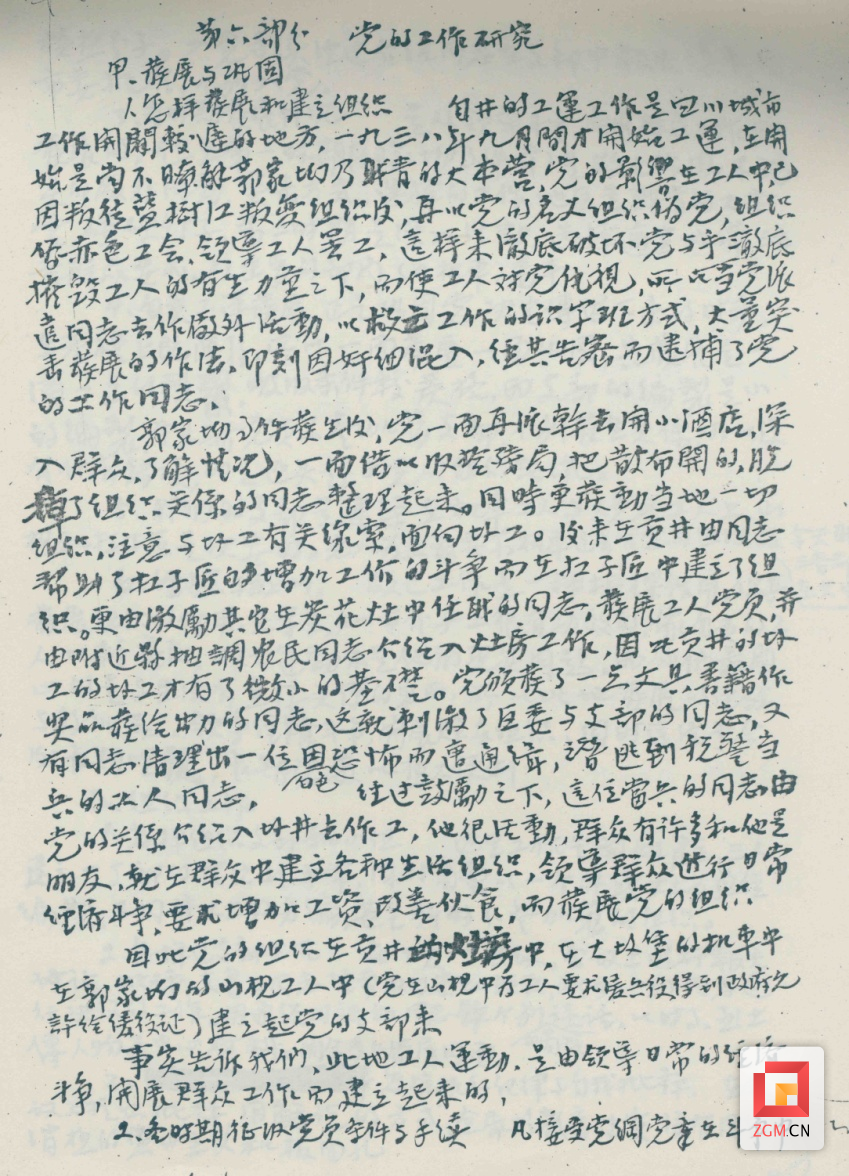 第六部分　党的工作研究
甲、發展与巩固
1怎样發展和建立组织　自井的工運工作是四川城市
工作開闢較遲的地方，一九三八年九月間才開始工運，在開
始是尚不瞭解郭家坳乃联青的大本营，党的影響在工人中，已
因叛徒藍樹江叛变组织後，再以党的名义组织偽党，组织
赤色工会，領導工人罢工，這样来澈底破坏党与澈底
摧毁工人的有生力量之下，而使工人对党仇視，所以当党派
遣同志去作外活動，以救亡工作的识字班方式，大量突
击發展的作法，即刻因奸细混入，經其告密而逮捕了党
的工作同志。
郭家坳事件發生後，党一面再派幹去開小酒店，深
入群众，了解情况，一面借以收局，把散布開的，脱
掉了组织关係的同志整理起来。同時更發動当地一切
组织，注意与坊工有关線索，面向坊工。後来在贡井由同志
帮助了杠子匠的增加工价的斗争而在杠子匠中建立了组
织。更由激勵其它在炭花灶中任職的同志，發展工人党員，并
由附近縣抽調农民同志介绍入灶房工作，因此贡井的坊
工的坊工才有了微小的基礎。党颁發了一点文具書籍作
奖品發给出力的同志，这就刺激了区委与支部的同志，又
有同志清理出一位因白色恐怖而遭通缉，潜逃到税警当
兵的工人同志，　经过鼓勵之下，這位當兵的同志由
党的关係介绍入坊井去作工，他很活動，群众有许多和他是
朋友，就在群众中建立各种生活组织，领導群众進行日常
经济斗争，要求增加工資、改善伙食，而發展党的组织
因此党的组织在贡井的灶房中，在大坟堡的机車中
在郭家坳的山枧工人中（党在山枧中为工人要求缓兵役得到政府允
許给缓役证）建立起党的支部来
事实告诉我們，此地工人運動，是由领導日常的经济
斗争，開展群众工作而建立起来的，
2.各時期征收党员条件与手续　凡接受党綱党章在
ZGM.CN